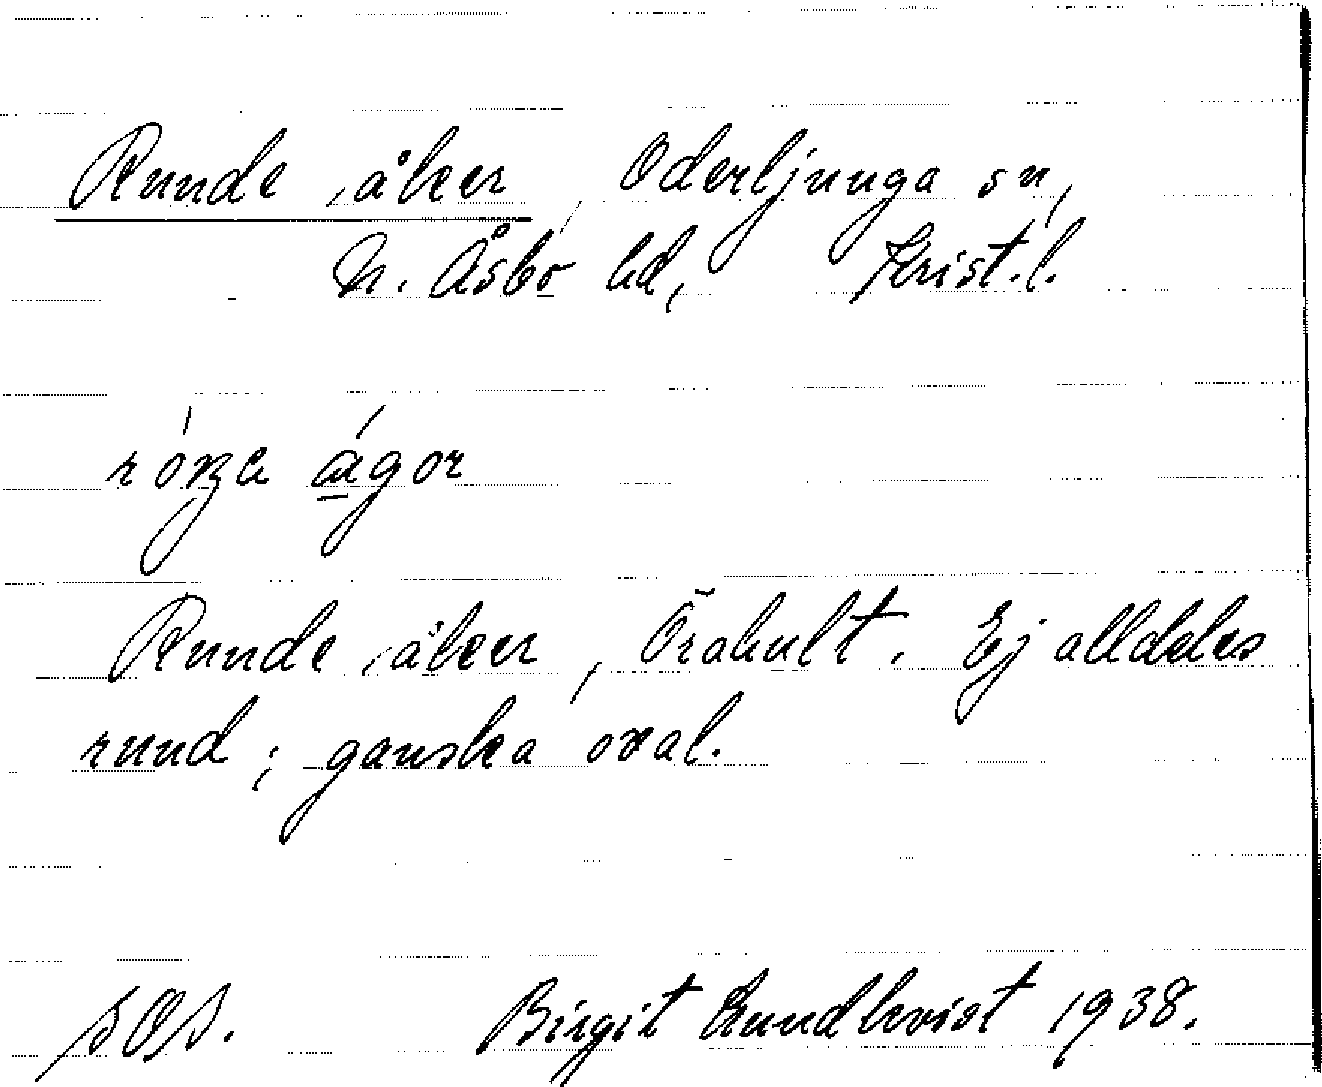 Runde åker, Oderljunga sn,
N. Åsbo hd, Krist. l.
Runde åker, Örahult. Ej alldeles
rund; ganska oval.
Birgit Lundkvist 1938.